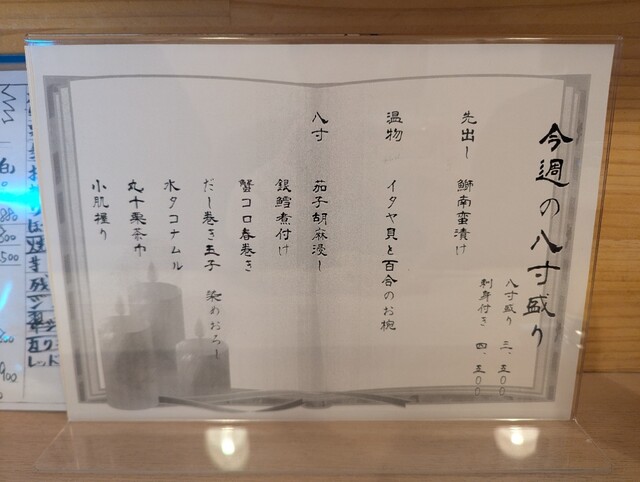 今週の八寸盛り
八寸盛り 三、五〇〇
刺身付き 四、五〇〇
先出し 鰤南蛮漬け
温物 イタヤ貝と百合のお椀
八寸 茄子胡麻浸し
銀鱈煮付け
蟹コロ春巻き
だし巻き玉子 染めおろし
水タコナムル
丸十栗茶巾
小肌握り